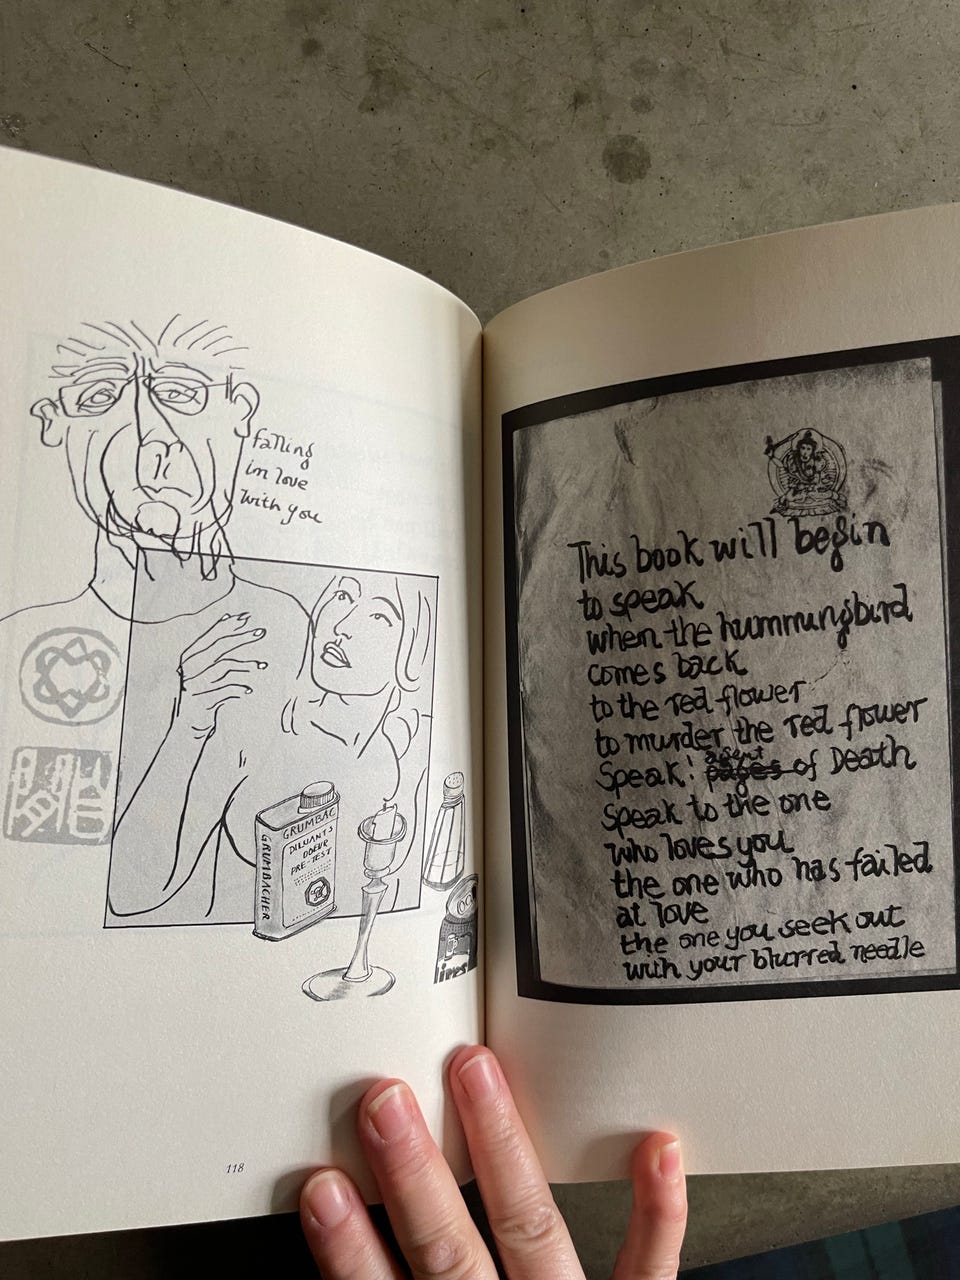 falling
in love
with you
GRUMBAC
DILUANTS
ODEUR
PRE-TEST
GRUMBACHER
118
This book will begin
to speak
when the hummingbird
comes back
to the red flower
to murder the red flower
agent
Speak! pages of Death
Speak to the one
who loves you
the one who has failed
at love
the one you seek out
with your blurred needle